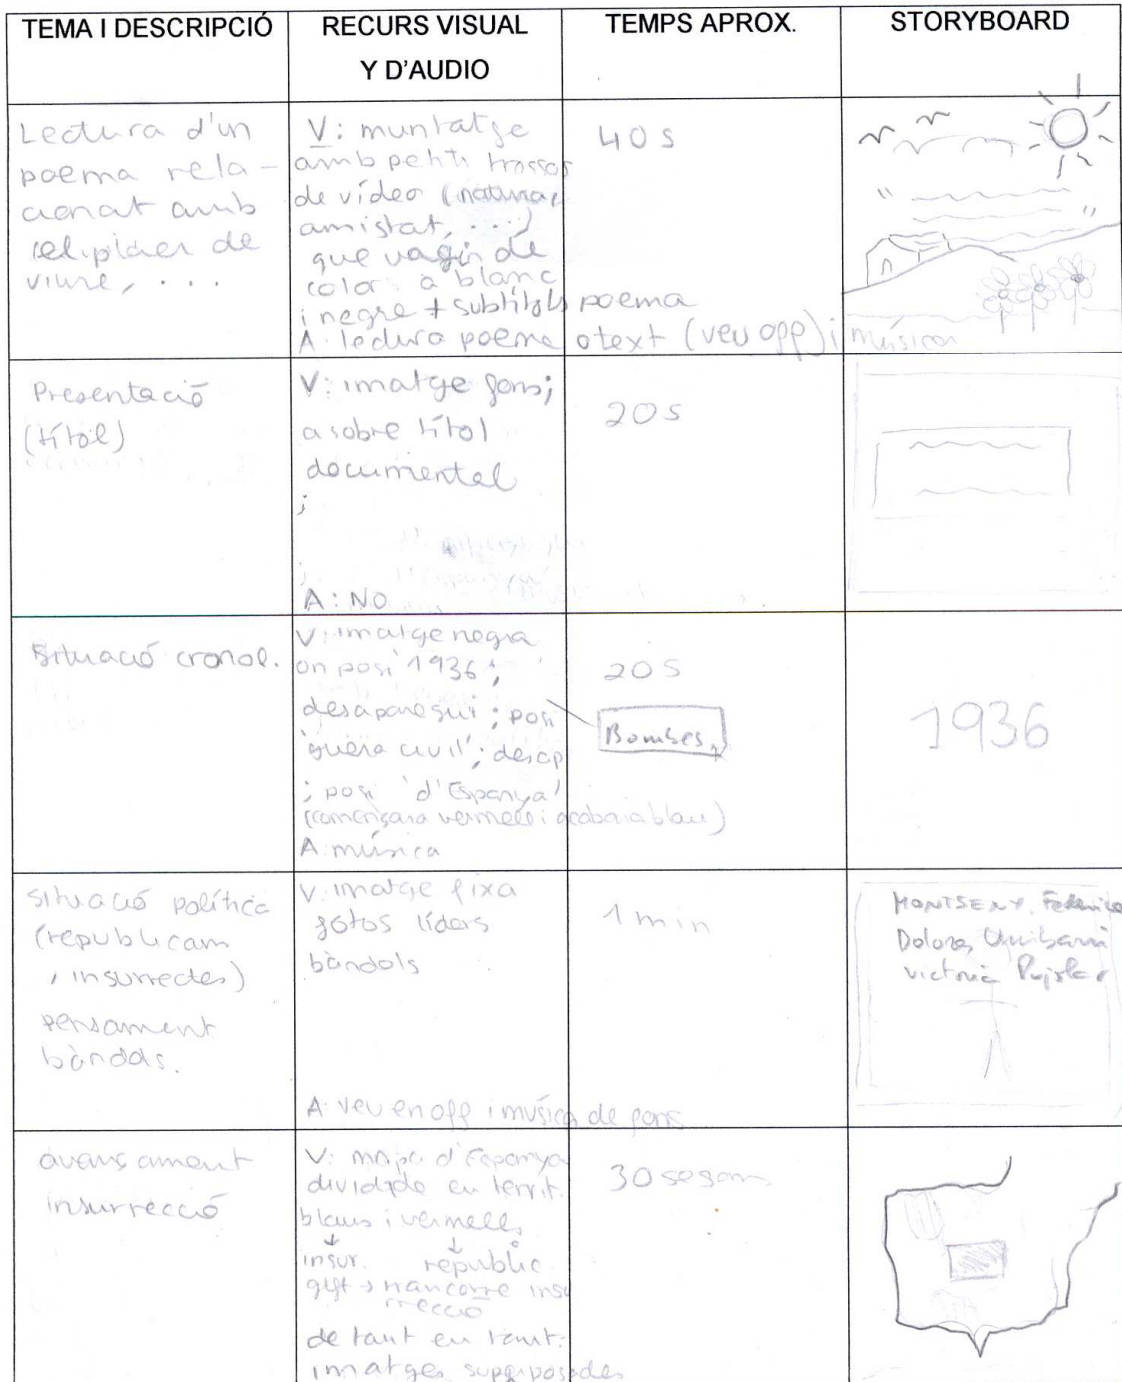 TEMA I DESCRIPCIÓ
RECURS VISUAL
Y D'AUDIO
TEMPS APROX.
STORYBOARD
Lectura d'un
poema rela-
cionat amb
el plaer de
viure, ...
V: muntatge
amb petits trossos
de vídeo (natura,
amistat, ...)
que vagin de
color a blanc
i negre + subtítols poema
A: lectura poema o text (veu off) i música
40 s
Presentació
(títol)
V: imatge fons;
a sobre títol
documental
;
A: NO
20 s
Situació cronol.
V: imatge negra
on posi '1936';
desaparegui; posi
'guerra civil'; desap
; posi 'd'Espanya'
(començarà vermell i acabaria blau)
A: música
20 s
Bombes
1936
Situació política
(republicans
, insurrectes)
pensament
bàndols.
V: imatge fixa
fotos líders
bàndols
A: veu en off i música de fons
1 min
MONTSENY, Federica
Dolores
Victoria
avançament
insurrecció
V: mapa d'Espanya
dividida en territ.
blaus i vermells
↓ ↓
insur. republic.
insu
rrecció
de tant en tant:
imatges superposades
30 segons